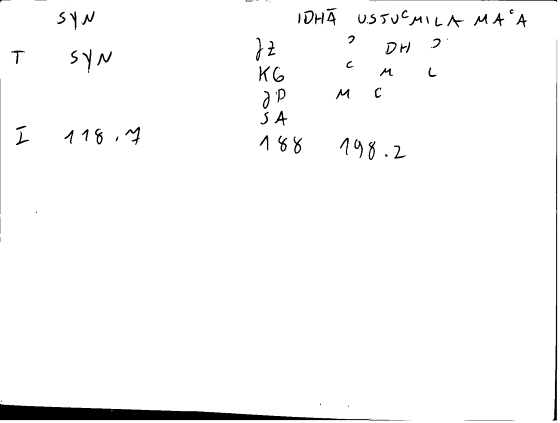 SYN IDHĀ USTUᶜMILA MAᶜA
T SYN JZ ʾ DH ʾ
KG ᶜ M L
JP M ᶜ
SA
I 118.7 188 198.2